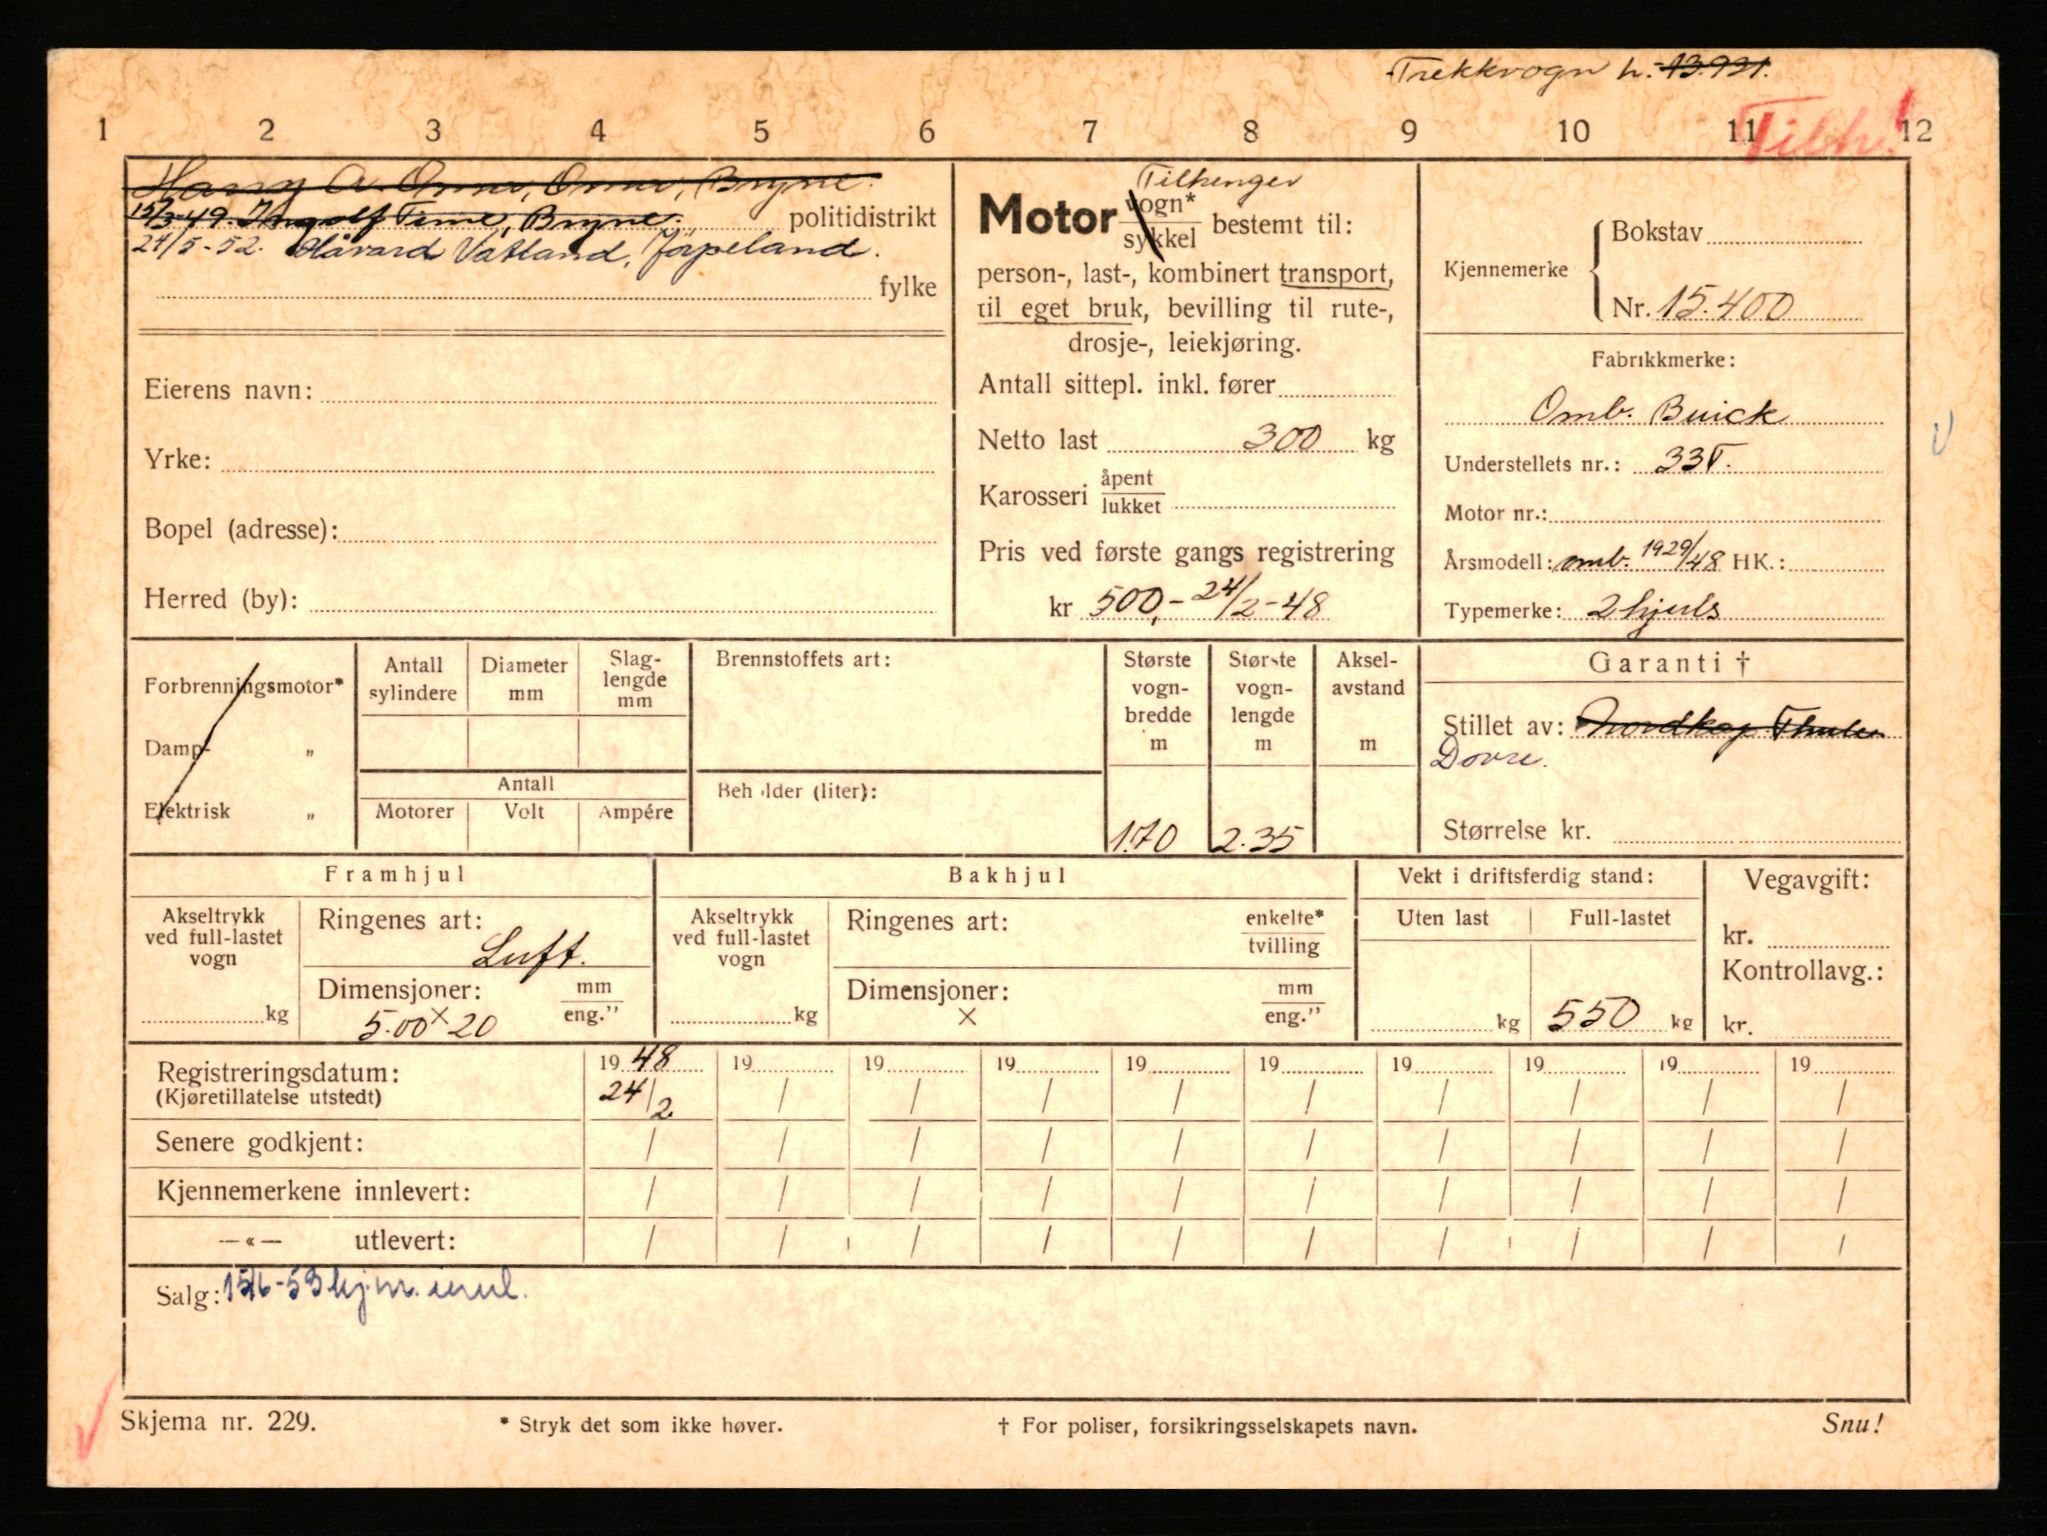 Trekkvogn h. 13.931.
Tilh!
1 2 3 4 5 6 7 8 9 10 11 12
Harry A. Omer, Omer, Bryne.
15/3-49. Ingolf Time, Bryne. politidistrikt
24/5-52. Håvard Vatland, Jørpeland.
fylke
Eierens navn:
Yrke:
Bopel (adresse):
Herred (by):
Tilhenger
Motor vogn* sykkel bestemt til:
person-, last-, kombinert transport,
til eget bruk, bevilling til rute-,
drosje-, leiekjøring.
Antall sittepl. inkl. fører
Netto last 300 kg
Karosseri åpent lukket
Pris ved første gangs registrering
kr 500,- 24/2-48
Kjennemerke
Bokstav
Nr. 15.400
Fabrikkmerke:
Omb. Buick
Understellets nr.: 33T.
Motor nr.:
Årsmodell: omb. 1929/48 HK.:
Typemerke: 2 hjuls
Forbrenningsmotor*
Damp- „
Elektrisk „
Antall sylindere
Diameter mm
Slag-lengde mm
Antall
Motorer Volt Ampére
Brennstoffets art:
Beholder (liter):
Største vogn-bredde m
1.70
Største vogn-lengde m
2.35
Aksel-avstand m
Garanti †
Stillet av: Nordkap Thule
Dovre.
Størrelse kr.
Framhjul
Akseltrykk ved full-lastet vogn
kg
Ringenes art:
Luft.
Dimensjoner: mm eng."
5.00 x 20
Bakhjul
Akseltrykk ved full-lastet vogn
kg
Ringenes art: enkelte* tvilling
Dimensjoner: mm eng."
x
Vekt i driftsferdig stand:
Uten last Full-lastet
kg 550 kg
Vegavgift:
kr.
Kontrollavg.:
kr.
Registreringsdatum: 19 48 19 19 19 19 19 19 19 19 19
(Kjøretillatelse utstedt) 24/2 / / / / / / / / /
Senere godkjent: / / / / / / / / / /
Kjennemerkene innlevert: / / / / / / / / / /
—«— utlevert: / / / / / / / / / /
Salg: 15/6-53 kj.m. innl.
Skjema nr. 229.
* Stryk det som ikke høver.
† For poliser, forsikringsselskapets navn.
Snu!